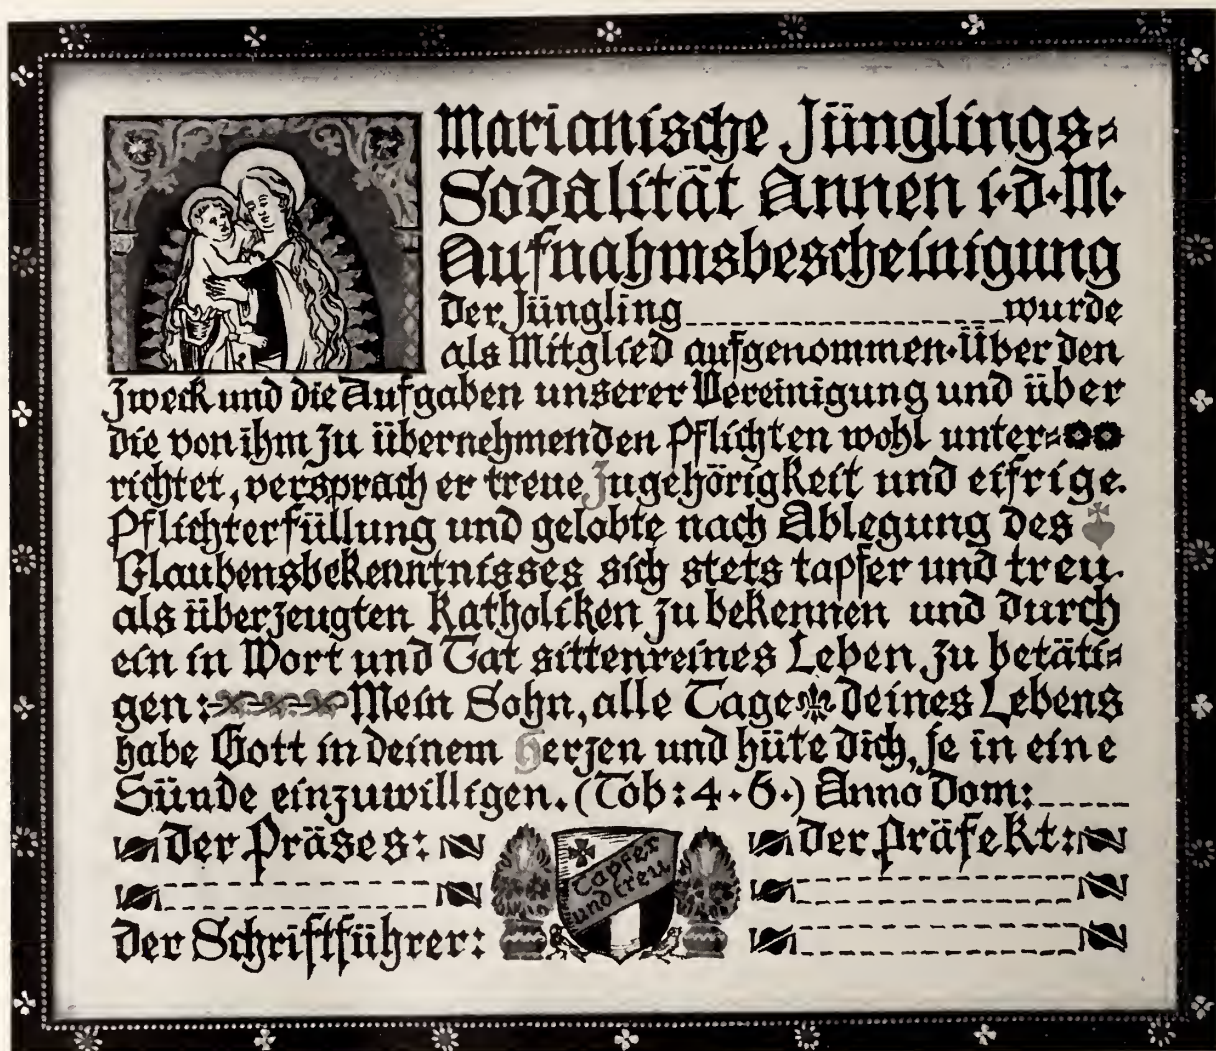 Marianische Jünglings=
Sodalität Annen i·d·M·
Aufnahmsbescheinigung
Der Jüngling wurde
als Mitglied aufgenommen·Über den
Zweck und die Aufgaben unserer Vereinigung und über
die von ihm zu übernehmenden Pflichten wohl unter=
richtet, versprach er treue Zugehörigkeit und eifrige
Pflichterfüllung und gelobte nach Ablegung des
Glaubensbekenntnisses sich stets tapfer und treu
als überzeugten Katholiken zu bekennen und durch
ein in Wort und Tat sittenreines Leben zu betäti=
gen: Mein Sohn, alle Tage deines Lebens
habe Gott in deinem Herzen und hüte dich, je in eine
Sünde einzuwilligen. (Tob: 4·6·) Anno Dom:
der Präses: der Präfekt:
Tapfer
und treu
der Schriftführer: